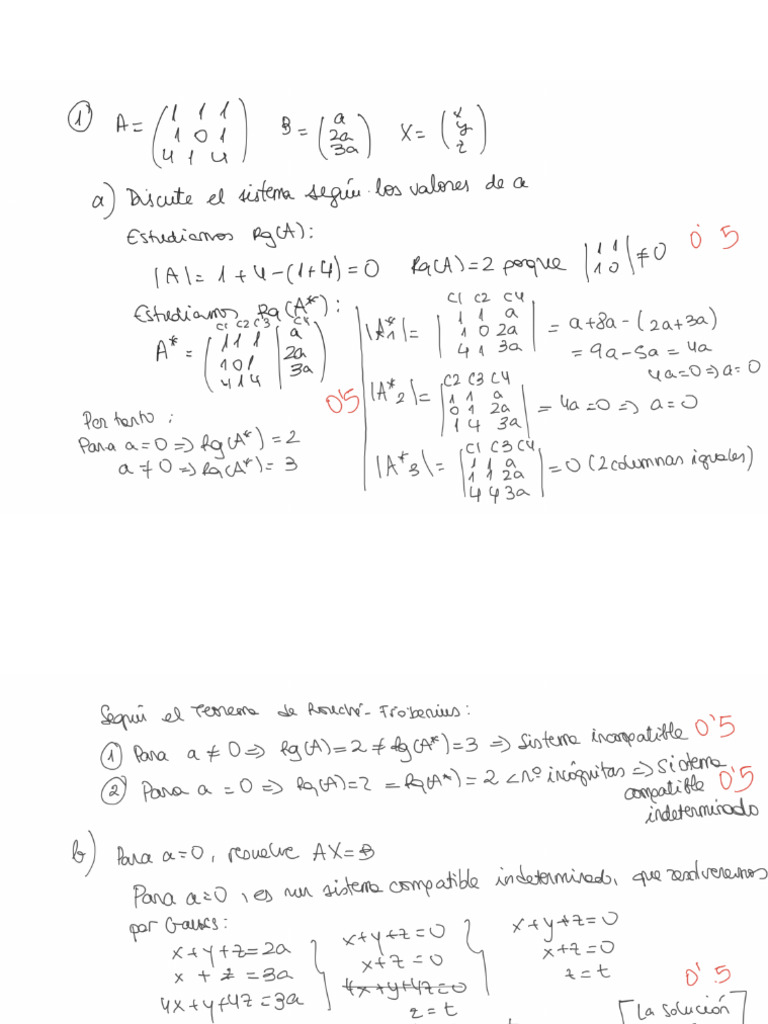 1 A = (1 1 1 / 1 0 1 / 4 1 4) B = (a / 2a / 3a) X = (x / y / z)
a) Discute el sistema según los valores de a
Estudiamos Rg(A):
|A| = 1 + 4 - (1+4) = 0 Rg(A) = 2 porque |1 1 / 1 0| ≠ 0 0'5
Estudiamos Rg(A*):
C1 C2 C3 C4
A* = (1 1 1 | a / 1 0 1 | 2a / 4 1 4 | 3a)
Por tanto:
Para a=0 => Rg(A*) = 2
a ≠ 0 => Rg(A*) = 3
0'5
C1 C2 C4
|A*1| = |1 1 a / 1 0 2a / 4 1 3a| = a + 8a - (2a + 3a)
= 9a - 5a = 4a
4a = 0 => a = 0
C2 C3 C4
|A*2| = |1 1 a / 0 1 2a / 1 4 3a| = 4a = 0 => a = 0
C1 C3 C4
|A*3| = |1 1 a / 1 1 2a / 4 4 3a| = 0 (2 columnas iguales)
Según el Teorema de Rouché-Frobenius:
1 Para a ≠ 0 => Rg(A) = 2 ≠ Rg(A*) = 3 => Sistema incompatible 0'5
2 Para a = 0 => Rg(A) = 2 = Rg(A*) = 2 < nº incógnitas => Sistema
compatible 0'5
indeterminado
b) Para a=0, resuelve AX=B
Para a=0, es un sistema compatible indeterminado, que resolveremos
por Gauss:
x+y+z=2a
x + z = 3a
4x+y+4z=3a
x+y+z=0
x+z=0
4x+y+4z=0
z=t
x+y+z=0
x+z=0
z=t
0'5
[La solución